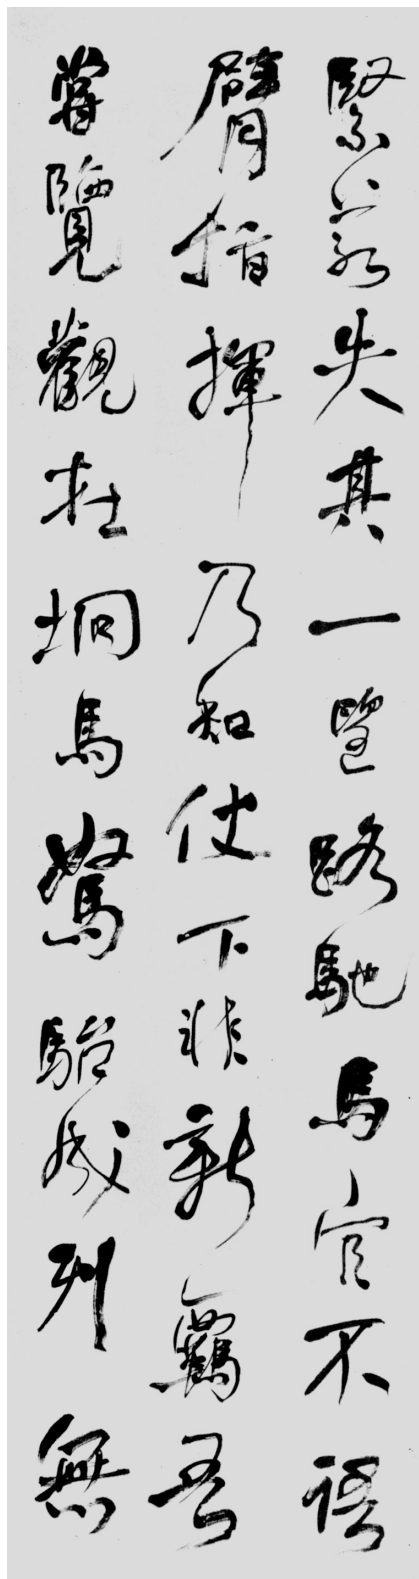 緊若失其一望路馳馬官不語
臂指揮乃知仗下非新羈吾
嘗覽觀在坰馬駑駘成列無